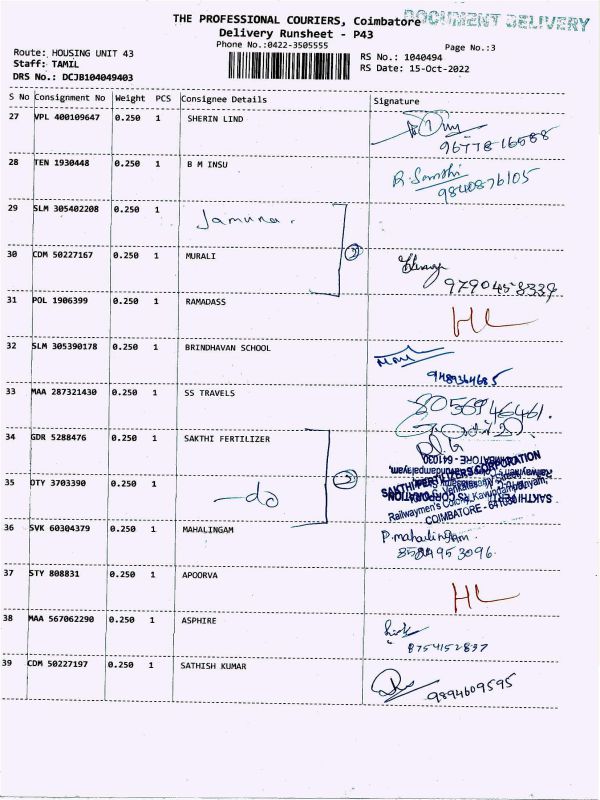 THE PROFESSIONAL COURIERS, Coimbatore
DOCUMENT DELIVERY
Delivery Runsheet - P43
Phone No.:0422-3505555
Page No.:3
Route: HOUSING UNIT 43
Staff: TAMIL
DRS No.: DCJB104049403
RS No.: 1040494
RS Date: 15-Oct-2022
S No Consignment No Weight PCS Consignee Details Signature
27 VPL 400109647 0.250 1 SHERIN LIND
96778 16588
28 TEN 1930448 0.250 1 B M INSU
9840876105
29 SLM 305402208 0.250 1 Jamuna.
30 CDM 50227167 0.250 1 MURALI
9790458339
31 POL 1906399 0.250 1 RAMADASS HL
32 SLM 305390178 0.250 1 BRINDHAVAN SCHOOL
9489364685
33 MAA 287321430 0.250 1 SS TRAVELS 8056946461.
34 GDR 5288476 0.250 1 SAKTHI FERTILIZER
35 OTY 3703390 0.250 1 -do
SAKTHI FERTILIZERS CORPORATION
Railwaymen's Colony, Kavundampalayam,
COIMBATORE - 641030
36 SVK 60304379 0.250 1 MAHALINGAM P.mahalingam.
37 STY 808831 0.250 1 APOORVA HL
38 MAA 567062290 0.250 1 ASPHIRE
8754152837
39 CDM 50227197 0.250 1 SATHISH KUMAR 9894609595